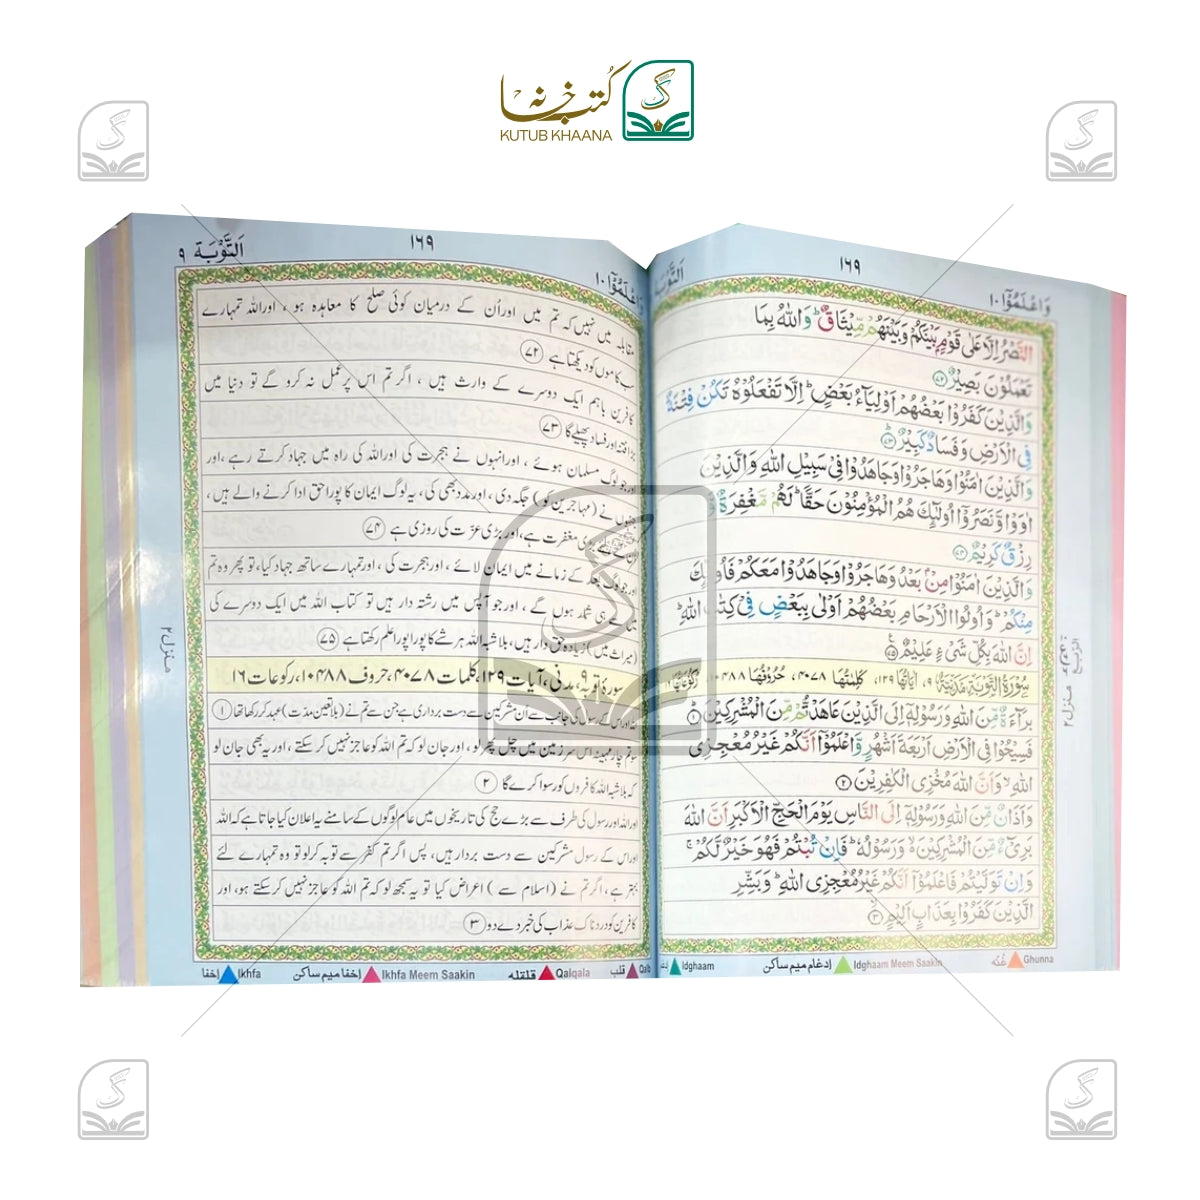 کتب خانہ
KUTUB KHAANA
وَاعْلَمُوْٓا ١٠
١٦٩
النَّصْرُ اِلَّا عَلٰى قَوْمٍۭ بَيْنَكُمْ وَبَيْنَهُمْ مِّيْثَاقٌ ؕ وَاللّٰهُ بِمَا
تَعْمَلُوْنَ بَصِيْرٌ
وَالَّذِيْنَ كَفَرُوْا بَعْضُهُمْ اَوْلِيَآءُ بَعْضٍ ؕ اِلَّا تَفْعَلُوْهُ تَكُنْ فِتْنَةٌ
فِى الْاَرْضِ وَفَسَادٌ كَبِيْرٌ
وَالَّذِيْنَ اٰمَنُوْا وَهَاجَرُوْا وَجَاهَدُوْا فِىْ سَبِيْلِ اللّٰهِ وَالَّذِيْنَ
اٰوَوْا وَّنَصَرُوْٓا اُولٰٓئِكَ هُمُ الْمُؤْمِنُوْنَ حَقًّا ؕ لَهُمْ مَّغْفِرَةٌ وَّ
رِزْقٌ كَرِيْمٌ
وَالَّذِيْنَ اٰمَنُوْا مِنْۢ بَعْدُ وَهَاجَرُوْا وَجَاهَدُوْا مَعَكُمْ فَاُولٰٓئِكَ
مِنْكُمْ ؕ وَاُولُوا الْاَرْحَامِ بَعْضُهُمْ اَوْلٰى بِبَعْضٍ فِىْ كِتٰبِ اللّٰهِ ؕ
اِنَّ اللّٰهَ بِكُلِّ شَىْءٍ عَلِيْمٌ
سُوْرَةُ التَّوْبَةِ مَدَنِيَّةٌ ٩، اٰيَاتُهَا ١٢٩، كَلِمٰتُهَا ٤٠٧٨، حُرُوْفُهَا ١٠٤٨٨،
بَرَآءَةٌ مِّنَ اللّٰهِ وَرَسُوْلِهٖٓ اِلَى الَّذِيْنَ عَاهَدْتُّمْ مِّنَ الْمُشْرِكِيْنَ ١
فَسِيْحُوْا فِى الْاَرْضِ اَرْبَعَةَ اَشْهُرٍ وَّاعْلَمُوْٓا اَنَّكُمْ غَيْرُ مُعْجِزِى
اللّٰهِ ۙ وَاَنَّ اللّٰهَ مُخْزِى الْكٰفِرِيْنَ ٢
وَاَذَانٌ مِّنَ اللّٰهِ وَرَسُوْلِهٖٓ اِلَى النَّاسِ يَوْمَ الْحَجِّ الْاَكْبَرِ اَنَّ اللّٰهَ
بَرِىْٓءٌ مِّنَ الْمُشْرِكِيْنَ ۙ وَرَسُوْلُهٗ ؕ فَاِنْ تُبْتُمْ فَهُوَ خَيْرٌ لَّكُمْ ۚ
وَاِنْ تَوَلَّيْتُمْ فَاعْلَمُوْٓا اَنَّكُمْ غَيْرُ مُعْجِزِى اللّٰهِ ؕ وَبَشِّرِ
الَّذِيْنَ كَفَرُوْا بِعَذَابٍ اَلِيْمٍ ٣
الربع
منزل ٢
Ghunna غُنّه
Idghaam Meem Saakin ادغام میم ساکن
Idghaam
وَاعْلَمُوْٓا ١٠
١٦٩
اَلتَّوْبَة ٩
مقابلہ میں نہیں کہ تم میں اور اُن کے درمیان کوئی صلح کا معاہدہ ہو ، اور اللہ تمہارے
سب کاموں کو دیکھتا ہے ۷۲
کافرین باہم ایک دوسرے کے وارث ہیں ، اگر تم اس پر عمل نہ کرو گے تو دنیا میں
بڑا فتنہ اور فساد پھیلے گا ۷۳
اور جو لوگ مسلمان ہوئے ، اور انہوں نے ہجرت کی اور اللہ کی راہ میں جہاد کرتے رہے ، اور
نے (مہاجرین کو) جگہ دی ، اور مدد بھی کی ، یہ لوگ ایمان کا پورا حق ادا کرنے والے ہیں ،
مغفرت ہے ، اور بڑی عزت کی روزی ہے ۷۴
کے زمانے میں ایمان لائے ، اور ہجرت کی ، اور تمہارے ساتھ جہاد کیا ، تو پھر وہ تم
ہی شمار ہوں گے ، اور جو آپس میں رشتہ دار ہیں تو کتاب اللہ میں ایک دوسرے کی
(میراث میں) زیادہ حق دار ہیں ، بلاشبہ اللہ ہر شے کا پورا پورا علم رکھتا ہے ۷۵
سورۂ توبہ ۹، مدنی ، آیات ۱۲۹، کلمات ۴۰۷۸، حروف ۱۰۴۸۸، رکوعات ۱۶
اللہ اور اس کے رسول کی جانب سے اُن مشرکین سے دست برداری ہے جن سے تم نے (بلا تعین مدت) عہد کر رکھا تھا ۱
سو تم چار مہینہ اس سرزمین میں چل پھر لو ، اور جان لو کہ تم اللہ کو عاجز نہیں کر سکتے ، اور یہ بھی جان لو
کہ بلاشبہ اللہ کافروں کو رسوا کرے گا ۲
اور اللہ اور رسول کی طرف سے بڑے حج کی تاریخوں میں عام لوگوں کے سامنے یہ اعلان کیا جاتا ہے کہ اللہ
اور اس کے رسول مشرکین سے دست بردار ہیں ، پس اگر تم کفر سے توبہ کر لو تو وہ تمہارے لئے
بہتر ہے ، اگر تم نے (اسلام سے) اعراض کیا تو یہ سمجھ لو کہ تم اللہ کو عاجز نہیں کر سکتے ہو ، اور
کافرین کو دردناک عذاب کی خبر دے دو ۳
منزل ٢
Qalb قلب
Qalqala قلقلہ
Ikhfa Meem Saakin اخفا میم ساکن
Ikhfa اخفا